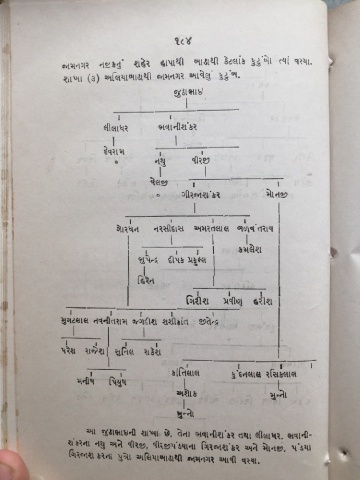 ૧૯૪
જામનગર નજીકનું શહેર હાપાથી ભાણથી કેટલાંક કુટુંબો ત્યાં વસ્યા.
શાખા (૩) અલિયાબાડાથી જામનગર આવેલું કુટુંબ.
જુઠાભાઇ
લીલાધર ભવાનીશંકર
દેવરામ નથુ વીરજી
વેલજી
ગીરજાશંકર મોનજી
ગોરધન નરસીદાસ અમરતલાલ જળવંતરાય
ભુપેન્દ્ર દીપક પ્રફુલ્લ કમલેશ
હિરેન
ગિરીશ પ્રવીણ હરીશ
મુગટલાલ નવનીતરામ જગદીશ શશીકાંત જીતેન્દ્ર
પરેશ રાજેશ સુનિલ રાકેશ
મનીષ પિયુષ કાંતિલાલ કુંદનલાલ રસિકલાલ
અશોક મુન્નો
મુન્નો
આ જુઠાભાઇની શાખા છે. તેના ભવાનીશંકર તથા લીલાધર. ભવાની-
શંકરના નથુ અને વીરજી. વીરજીપંડયાના ગિરજાશંકર અને મોનજી. પંડયા
ગિરજાશંકરના પુત્રો અલિયાબાડાથી જામનગર આવી વસ્યા.